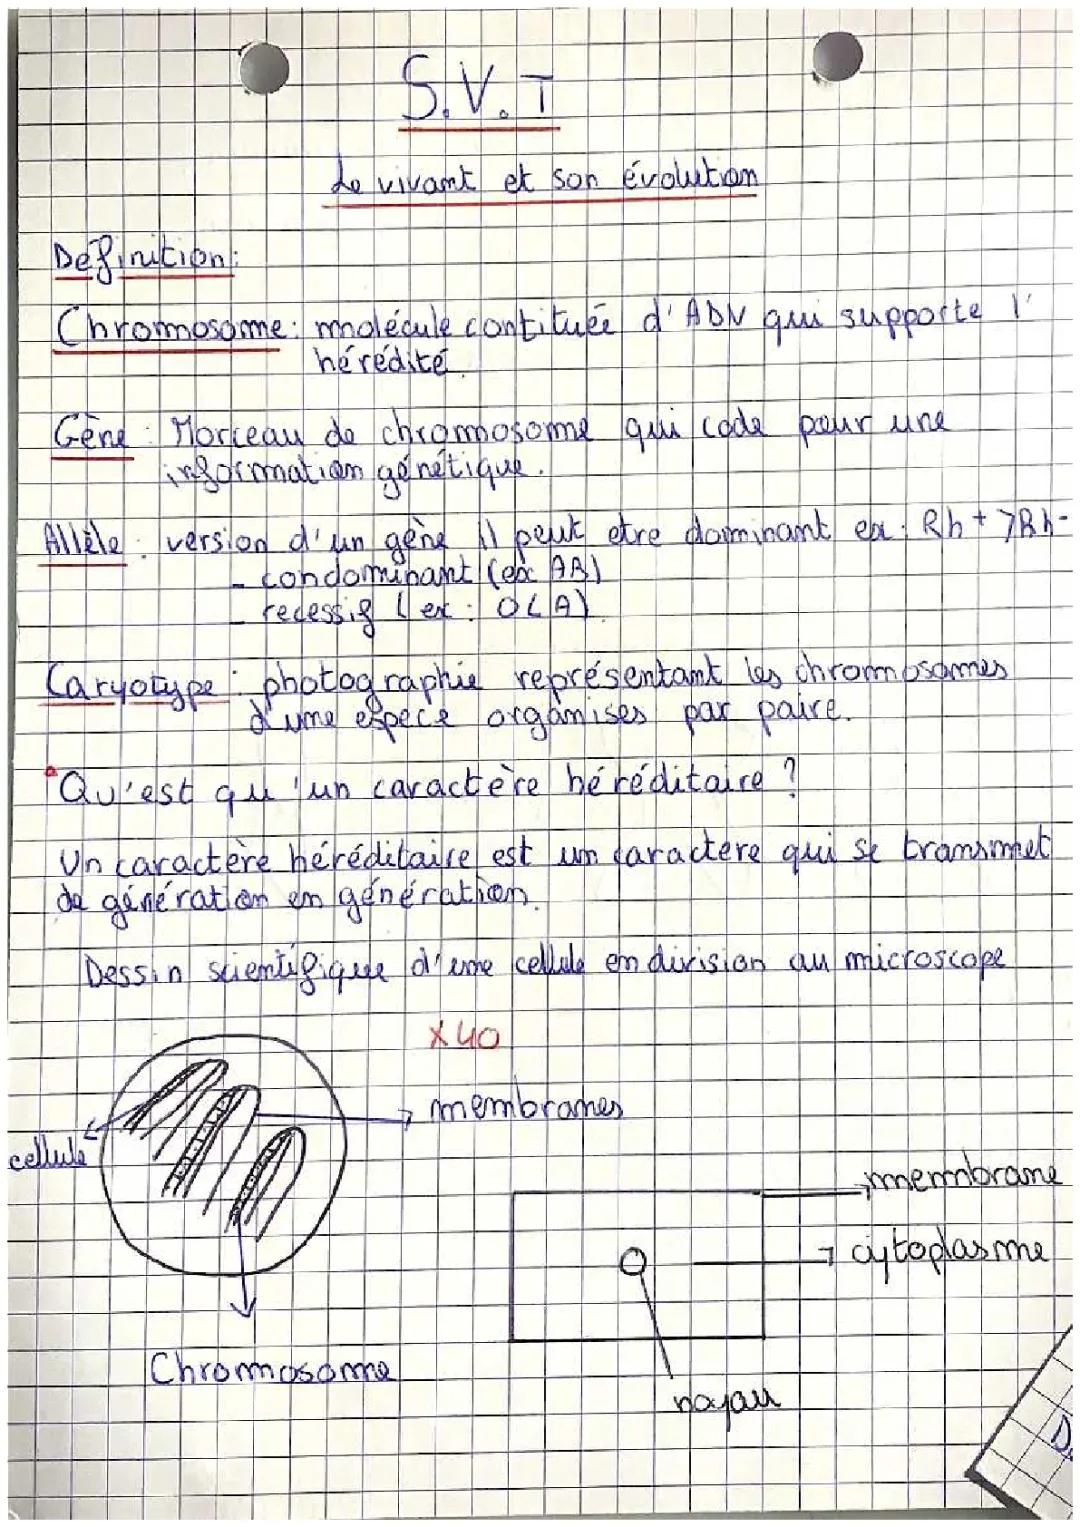 S.V.T
Le vivant et son évolution
Définition:
Chromosome: molécule contituée d'ADN qui supporte l'
hérédité.
Gène: Morceau de chromosome qui code pour une
information génétique.
Allèle: version d'un gène il peut etre dominant ex: Rh+>Rh-
- condominant (ex AB)
- recessif (ex: O<A)
Caryotype: photographie représentant les chromosomes
d'une espece organises par paire.
Qu'est qu'un caractère héréditaire ?
Un caractère héréditaire est un caractere qui se transmet
de génération en génération.
Dessin scientifique d'une cellule en division au microscope
X40
membranes
cellule
membrane
cytoplasme
Chromosome
noyau